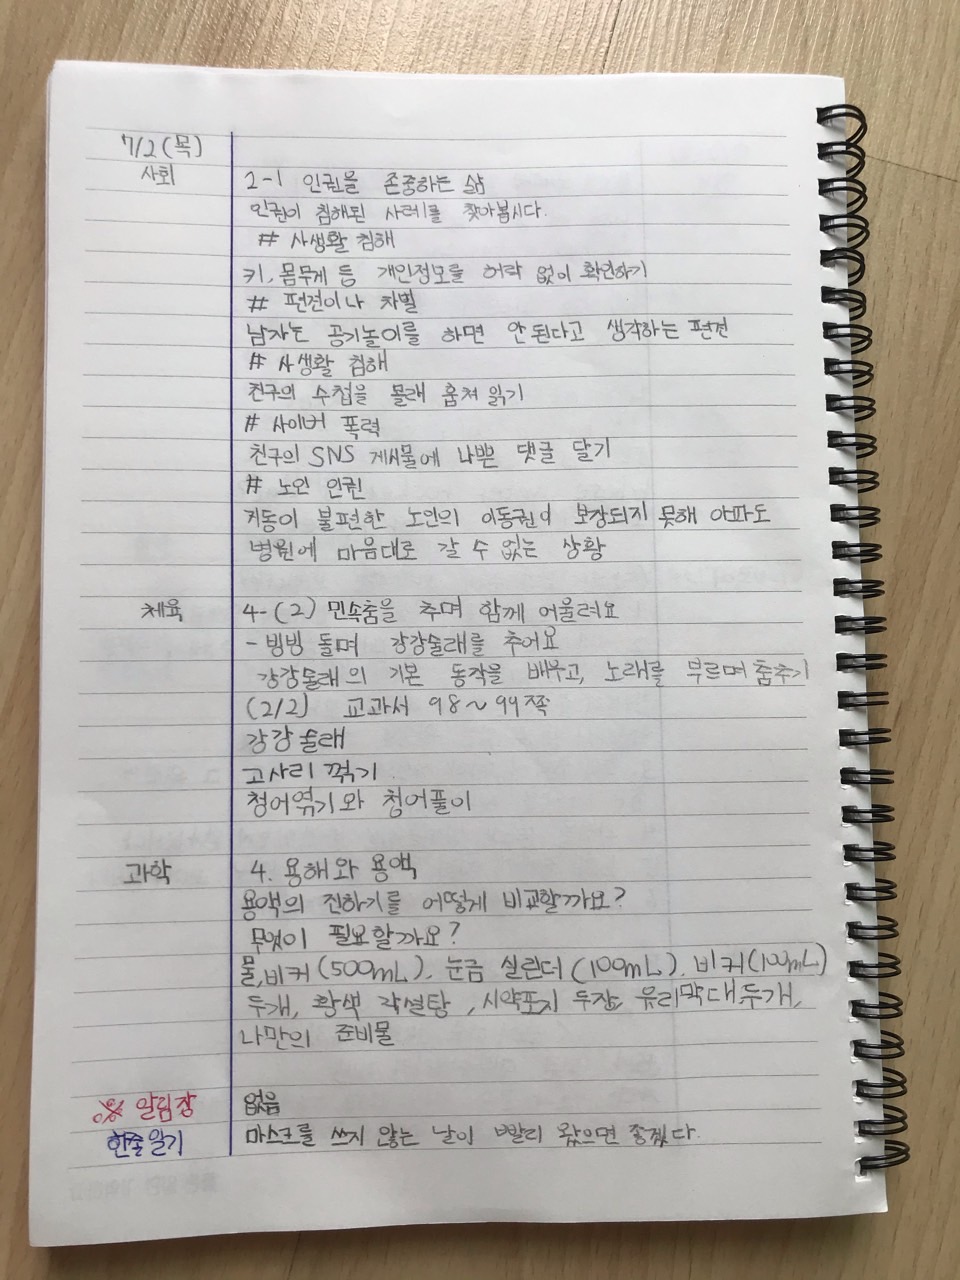 7/2(목)
사회 2-1 인권을 존중하는 삶
인권이 침해된 사례를 찾아봅시다.
# 사생활 침해
키, 몸무게 등 개인정보를 허락 없이 확인하기
# 편견이나 차별
남자는 공기놀이를 하면 안된다고 생각하는 편견
# 사생활 침해
친구의 수첩을 몰래 훔쳐 읽기
# 사이버 폭력
친구의 SNS 게시물에 나쁜 댓글 달기
# 노인 인권
거동이 불편한 노인의 이동권이 보장되지 못해 아파도
병원에 마음대로 갈 수 없는 상황
체육 4-(2) 민속춤을 추며 함께 어울려요
- 빙빙 돌며 강강술래를 추어요
강강술래의 기본 동작을 배우고, 노래를 부르며 춤추기
(2/2) 교과서 98~99쪽
강강술래
고사리 꺾기
청어엮기와 청어풀이
과학 4. 용해와 용액
용액의 진하기를 어떻게 비교할까요?
무엇이 필요할까요?
물, 비커(500mL), 눈금 실린더(100mL), 비커(100mL)
두개, 황색 각설탕, 시약포지 두장, 유리막대 두개,
나만의 준비물
※ 알림장 없음
한줄일기 마스크를 쓰지 않는 날이 빨리 왔으면 좋겠다.